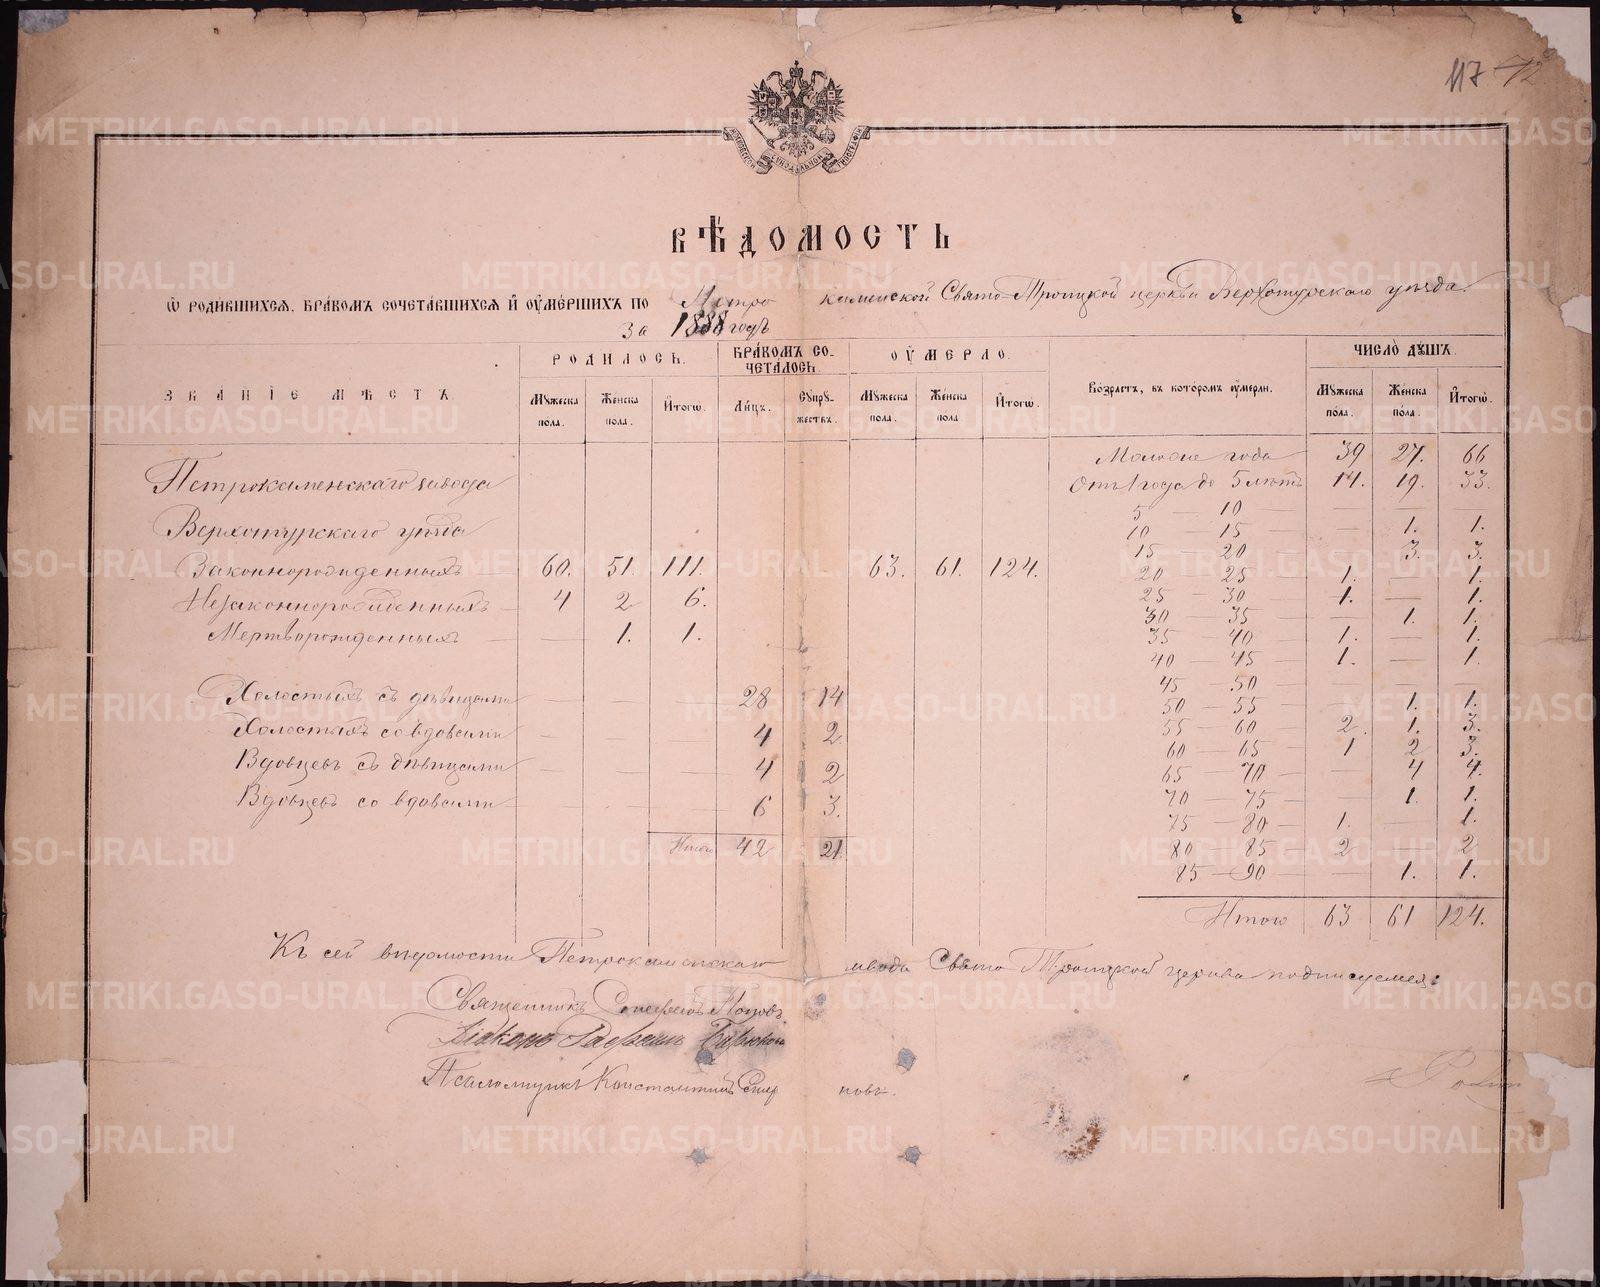 117 72
МОСКОВСКОЙ СѴНОДАЛЬНОЙ ТИПОГРАФІИ
ВѢДОМОСТЬ
Ѡ РОДИВШИХСЯ, БРАКОМЪ СОЧЕТАВШИХСЯ И ОУМЕРШИХЪ ПО Петро каменской Свято-Троицкой церкви Верхотурскаго уѣзда.
За 1888 годъ
ЗВАНІЕ МѢСТЪ
РОДИЛОСЬ.
БРАКОМЪ СОЧЕТАЛОСЬ.
ОУМЕРЛО.
Возрастъ, въ которомъ оумерли.
ЧИСЛО ДУШЪ.
Мужеска пола. Женска пола. Итогѡ. Лицъ. Супружествъ. Мужеска пола. Женска пола Итогѡ. Мужеска пола. Женска пола. Итогѡ.
Петрокаменскаго завода
Верхотурскаго уѣзда
Законнорожденныхъ 60. 51. 111. 63. 61. 124.
Незаконнорожденныхъ — 4 2 6.
Мертворожденныхъ — — 1. 1.
Холостыхъ съ дѣвицами — — — 28 14
Холостыхъ со вдовами — — — 4 2
Вдовцевъ съ дѣвицами — — — 4 2
Вдовцевъ со вдовами — — — 6 3.
Итого 42 21.
Моложе года 39 27. 66
Отъ 1 года до 5 лѣтъ 14. 19. 33.
5 — 10 — — — —
10 — 15 — — 1. 1.
15 — 20 — — 3. 3.
20 — 25 — 1. — 1.
25 — 30 — 1. — 1.
30 — 35 — — 1. 1.
35 — 40 — 1. — 1.
40 — 45 — 1. — 1.
45 — 50 — — — —
50 — 55 — — 1. 1.
55 — 60 — 2. 1. 3.
60 — 65 — 1 2 3.
65 — 70 — — 4 4.
70 — 75 — — 1. 1.
75 — 80 — 1. — 1.
80 — 85 — 2 — 2
85 — 90 — — 1. 1.
Итого 63 61 124.
Къ сей вѣдомости Петрокаменскаго завода Свято Троицкой церкви подписуемся:
Священникъ Поповъ
Діаконъ
Псаломщикъ Константинъ Смирновъ.
METRIKI.GASO-URAL.RU